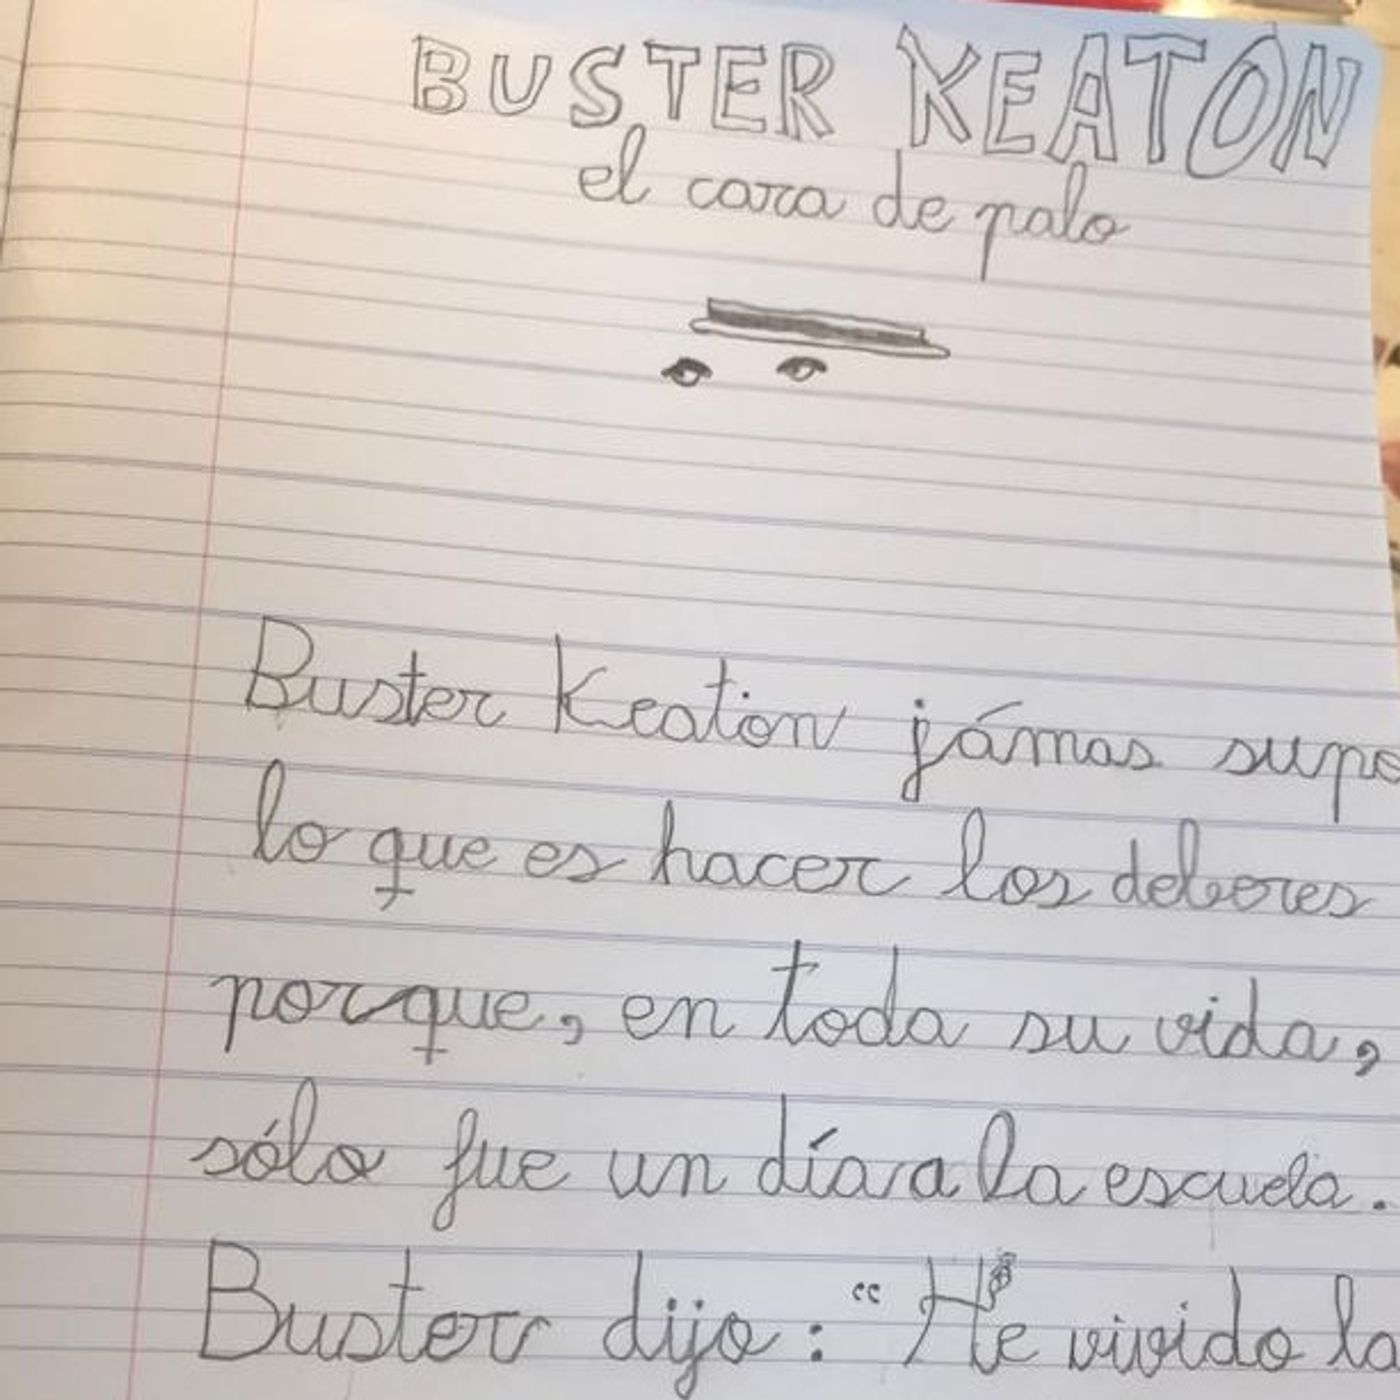 BUSTER KEATON
el cara de palo
Buster Keaton jámas supo
lo que es hacer los deberes
porque, en toda su vida,
sólo fue un día a la escuela.
Buster dijo: “He vivido la